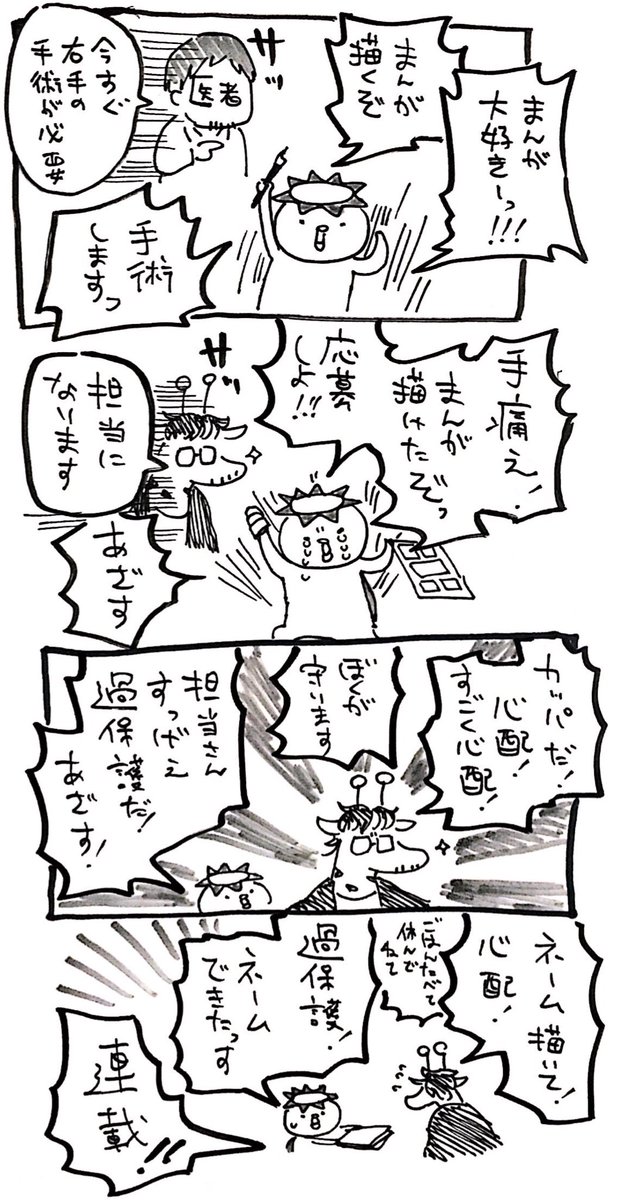 まんが
大好きーっ!!!
まんが
描くぞ
サッ
医者
今すぐ
右手の
手術が必要
手術
しますっ
手痛え!
まんが
描けたぞっ
応募
しよ!!
サッ
担当に
なります
あざす
カッパだ!
心配!
すごく心配!
ぼくが
守ります
担当さん
すっげえ
過保護だ!
あざす!
ネーム描いて!
心配!
ごはんたべて
休んで
ねて
過保護!
ネーム
できたっす
連載!!